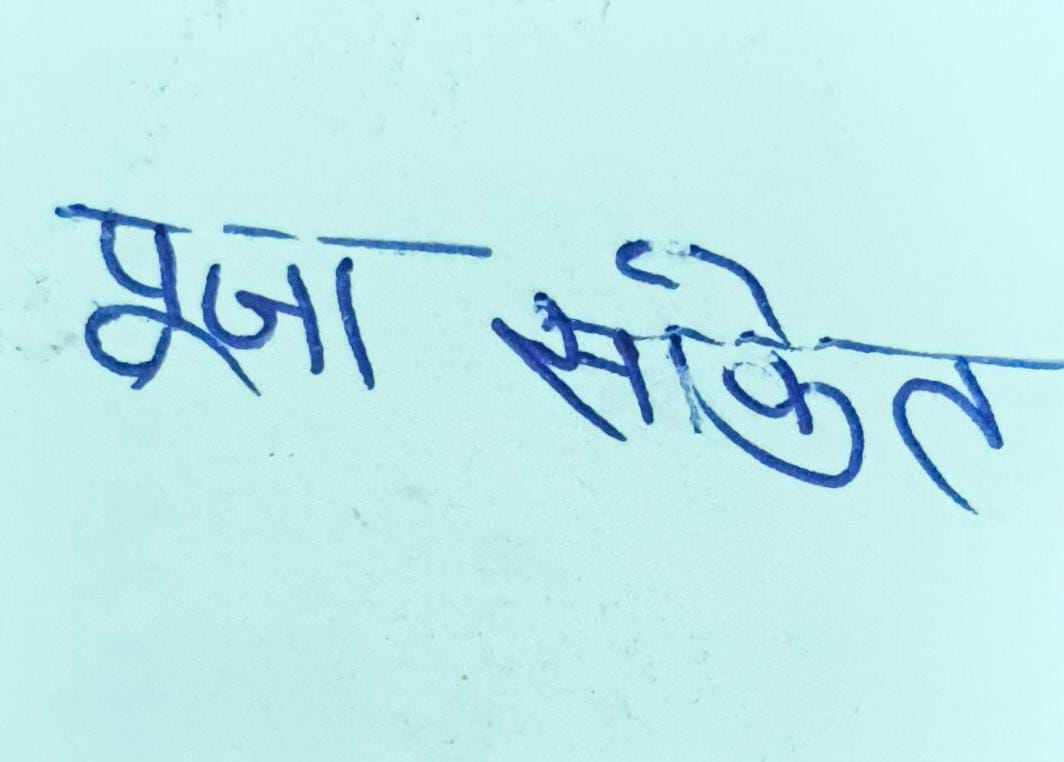 पूजा साकेत